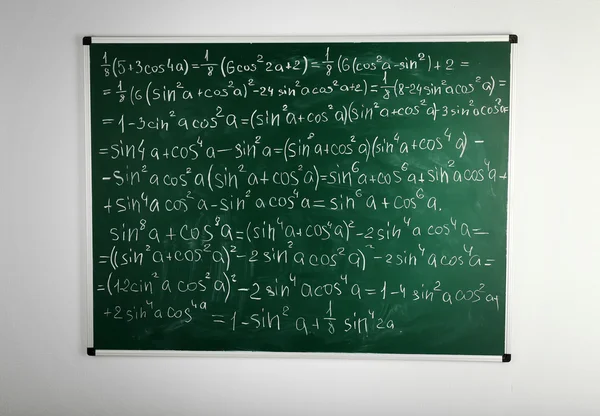 1/8(5+3cos4a)=1/8(6cos²2a+2)=1/8(6(cos²a-sin²)+2=
=1/8(6(sin²a+cos²a)²-24sin²acos²a+2)=1/8(8-24sin²acos²a)=
=1-3cin²acos²a=(sin²a+cos²a)(sin²a+cos²a)-3sin²acos²a=
=sin4a+cos⁴a-sin²a=(sin²a+cos²a)(sin⁴a+cos⁴a)-
-sin²acos²a(sin²a+cos²a)=sin⁶a+cos⁶a+sin²acos⁴a+
+sin⁴acos²a-sin²acos⁴a=sin⁶a+cos⁶a.
sin⁸a+cos⁸a=(sin⁴a+cos⁴a)²-2sin⁴acos⁴a=
=((sin²a+cos²a)²-2sin²acos²a)²-2sin⁴acos⁴a=
=(12cin²acos²a)²-2sin⁴acos⁴a=1-4sin²acos²a+
+2sin⁴acos⁴a=1-sin²a+1/8sin⁴2a.